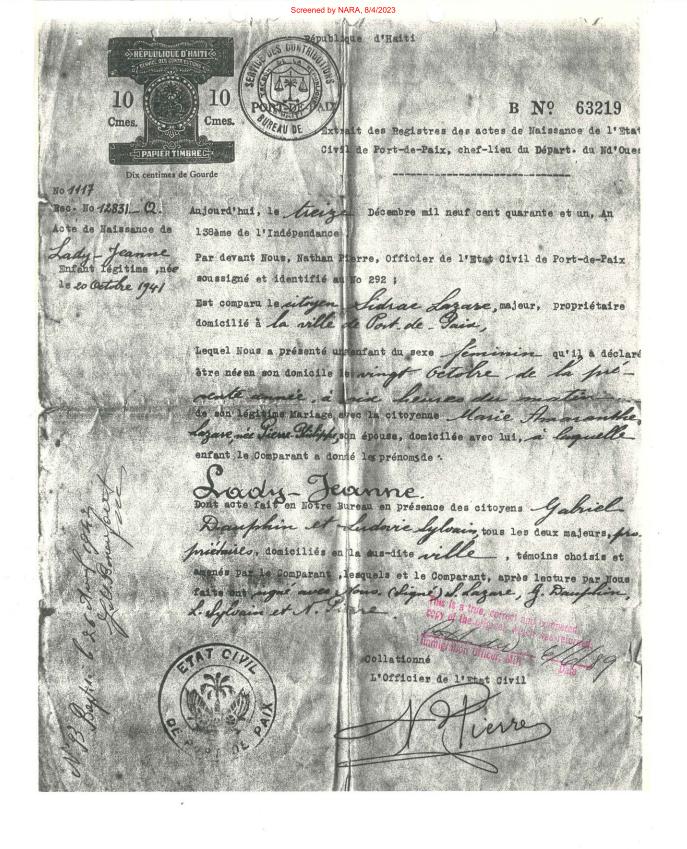 Screened by NARA, 8/4/2023
République d'Haiti
RÉPUBLIQUE D'HAITI
SERVICE DES CONTRIBUTIONS
10 Cmes.
10 Cmes.
PAPIER TIMBRE
Dix centimes de Gourde
SERVICE DES CONTRIBUTIONS
PORT-DE-PAIX
BUREAU DE
B Nº 63219
Extrait des Registres des actes de Naissance de l'Etat
Civil de Port-de-Paix, chef-lieu du Départ. du Nd'Oues
No 1117
Rec. No 12831 - Q.
Acte de Naissance de
Lady-Jeanne
Enfant légitime, née
le 20 Octobre 1941
Aujourd'hui, le treize Décembre mil neuf cent quarante et un, An
138ème de l'Indépendance
Par devant Nous, Nathan Pierre, Officier de l'Etat Civil de Port-de-Paix
soussigné et identifié au No 292 ;
Est comparu le citoyen Sidrac Lazare, majeur, propriétaire
domicilié à la ville de Port-de-Paix,
Lequel Nous a présenté un enfant du sexe féminin qu'il a déclaré
être née en son domicile le vingt octobre de la pré-
sente année, à six heures du matin
de son légitime Mariage avec la citoyenne Marie
Lazare, née Pierre Philippe, son épouse, domiciliée avec lui, à laquelle
enfant le Comparant a donné les prénoms de :
Lady-Jeanne.
Dont acte fait en Notre Bureau en présence des citoyens Gabriel
Dauphin et Ludovic Sylvain, tous les deux majeurs, pro-
priétaires, domiciliés en la sus-dite ville, témoins choisis et
amenés par le Comparant, lesquels et le Comparant, après lecture par Nous
faite ont signé avec Nous. (Signé) S. Lazare, G. Dauphin,
L. Sylvain et N. Pierre
This is a true, correct and compared
copy of the original
Immigration Officer,
Date
Collationné
L'Officier de l'Etat Civil
N. Pierre
ETAT CIVIL
DE PORT DE PAIX